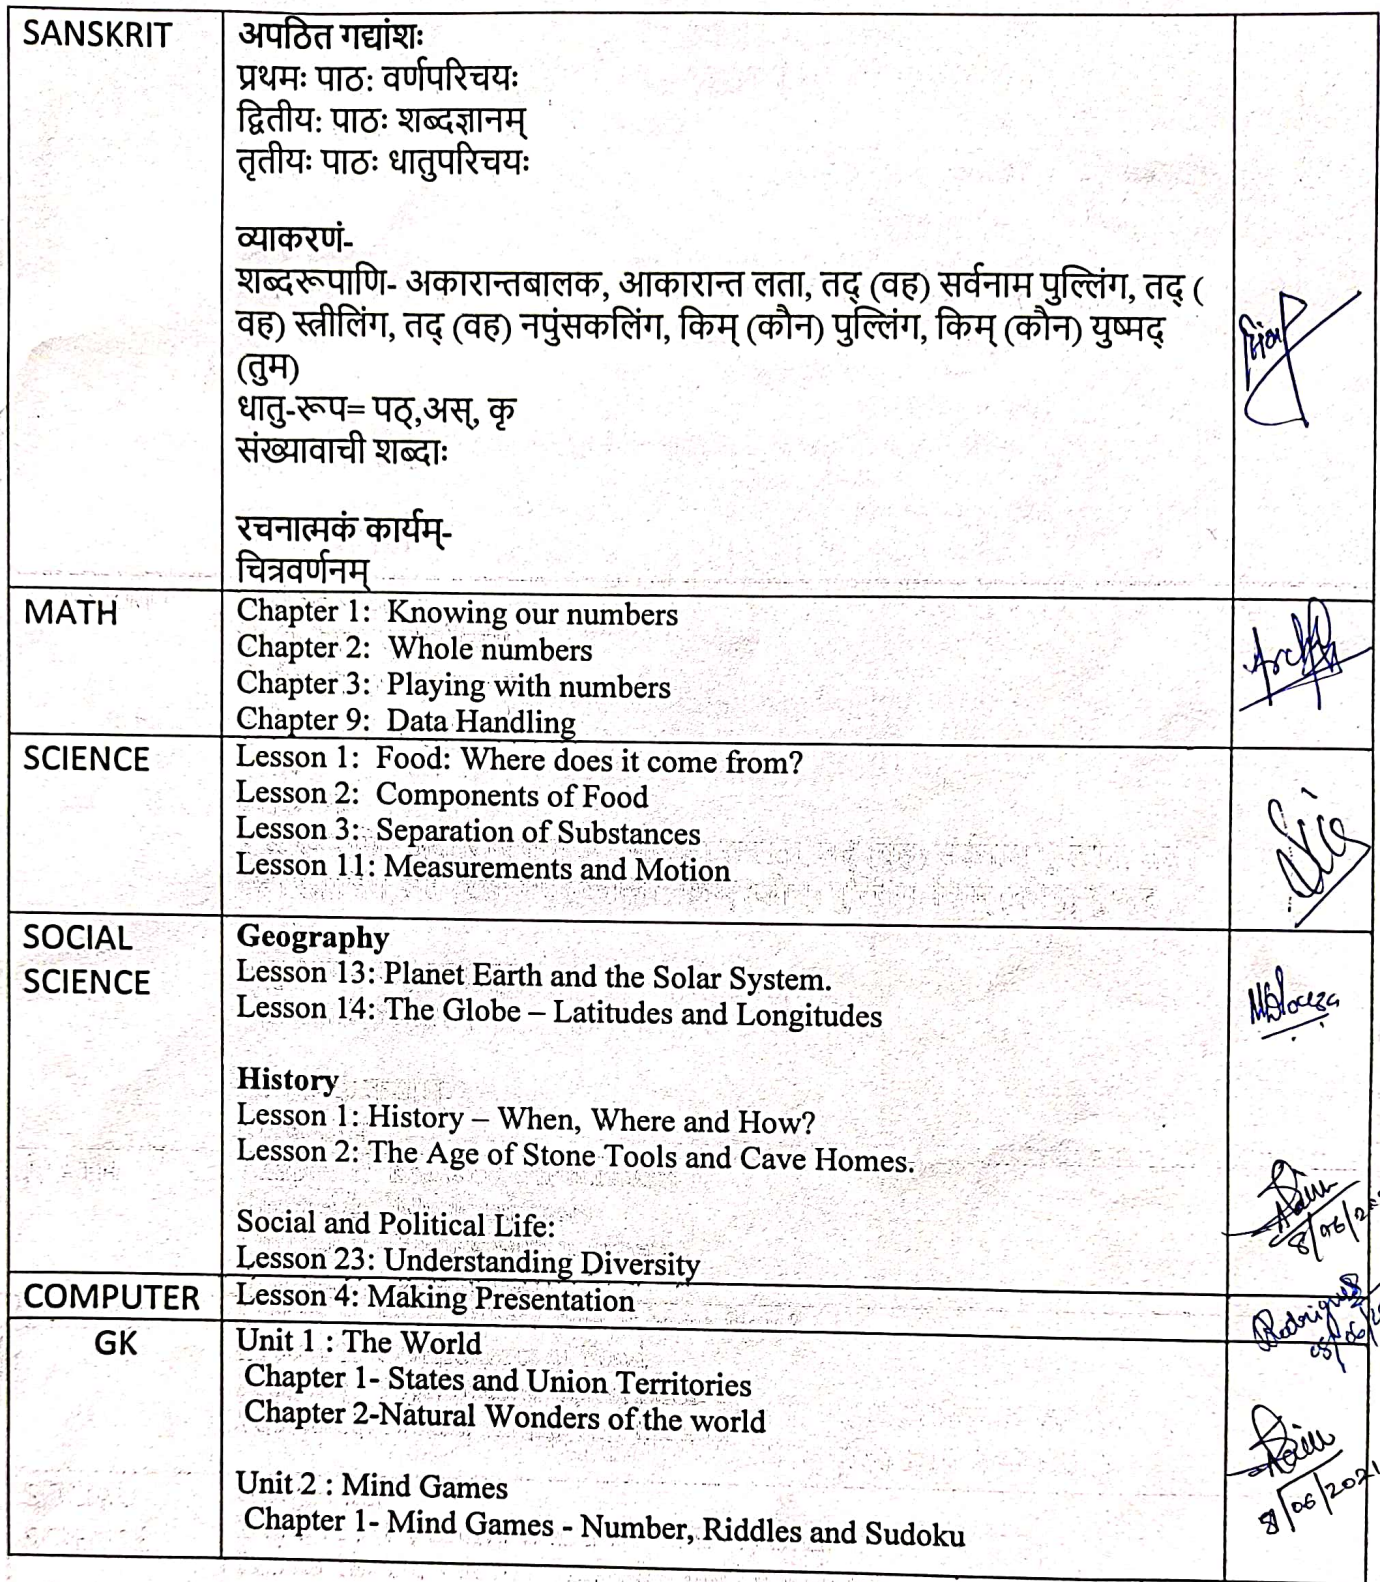 SANSKRIT
अपठित गद्यांशः
प्रथमः पाठ: वर्णपरिचयः
द्वितीय: पाठः शब्दज्ञानम्
तृतीयः पाठः धातुपरिचयः
व्याकरणं-
शब्दरूपाणि- अकारान्तबालक, आकारान्त लता, तद् (वह) सर्वनाम पुल्लिंग, तद् (
वह) स्त्रीलिंग, तद् (वह) नपुंसकलिंग, किम् (कौन) पुल्लिंग, किम् (कौन) युष्मद्
(तुम)
धातु-रूप= पठ्,अस्, कृ
संख्यावाची शब्दाः
रचनात्मकं कार्यम्-
चित्रवर्णनम्
MATH
Chapter 1: Knowing our numbers
Chapter 2: Whole numbers
Chapter 3: Playing with numbers
Chapter 9: Data Handling
SCIENCE
Lesson 1: Food: Where does it come from?
Lesson 2: Components of Food
Lesson 3: Separation of Substances
Lesson 11: Measurements and Motion
SOCIAL
SCIENCE
Geography
Lesson 13: Planet Earth and the Solar System.
Lesson 14: The Globe – Latitudes and Longitudes
History
Lesson 1: History – When, Where and How?
Lesson 2: The Age of Stone Tools and Cave Homes.
Social and Political Life:
Lesson 23: Understanding Diversity
8/06/2
COMPUTER
Lesson 4: Making Presentation
Rodrigues
08/06/
GK
Unit 1 : The World
Chapter 1- States and Union Territories
Chapter 2-Natural Wonders of the world
Unit 2 : Mind Games
Chapter 1- Mind Games - Number, Riddles and Sudoku
8/06/2021